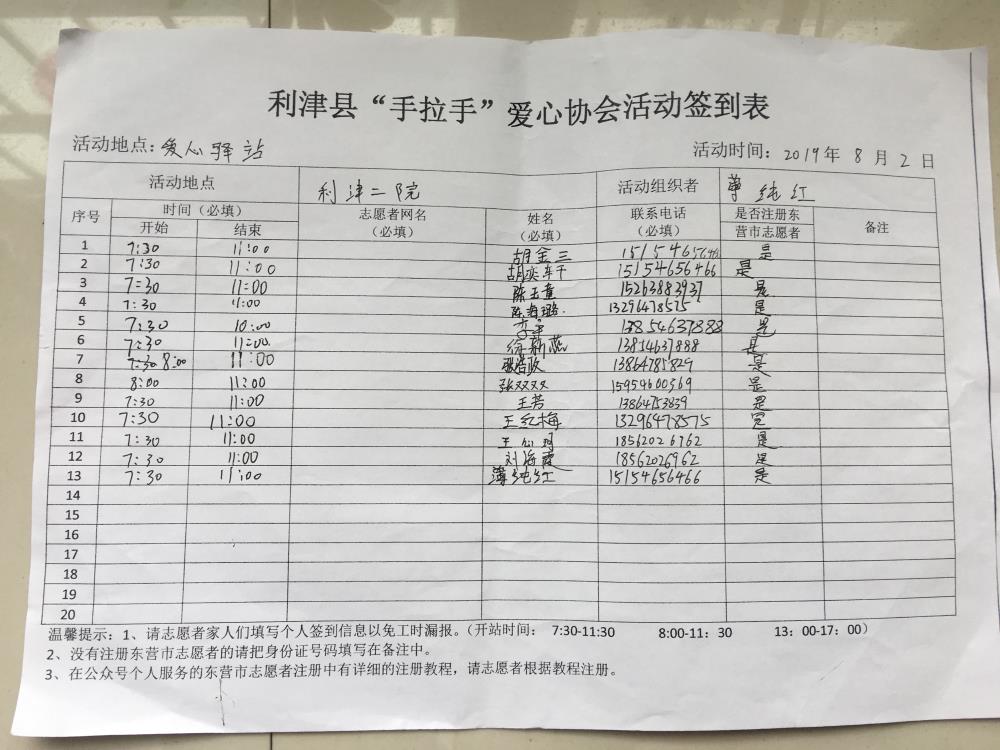 利津县“手拉手”爱心协会活动签到表
活动地点：爱心驿站 活动时间：2019年8月2日
活动地点 利津二院 活动组织者 纯红
序号 时间（必填） 志愿者网名（必填） 姓名（必填） 联系电话（必填） 是否注册东营市志愿者 备注
开始 结束
1 7:30 11:00 胡金三 是
2 7:30 11:00 15154656466 是
3 7:30 11:00 陈玉童 15263883937 是
4 7:30 11:00 13296478575 是
5 7:30 10:00 是
6 7:30 11:00 徐新燕 13854637888 是
7 7:30 8:00 11:00 13864785829 是
8 8:00 11:00 张双双 15954600369 是
9 7:30 11:00 王芳 13864753839 是
10 7:30 11:00 王红梅 13296478575 是
11 7:30 11:00 18562026762 是
12 7:30 11:00 刘海霞 18562026962 是
13 7:30 11:00 薄纯红 15154656466 是
14
15
16
17
18
19
20
温馨提示：1、请志愿者家人们填写个人签到信息以免工时漏报。（开站时间： 7:30-11:30 8:00-11：30 13：00-17：00）
2、没有注册东营市志愿者的请把身份证号码填写在备注中。
3、在公众号个人服务的东营市志愿者注册中有详细的注册教程，请志愿者根据教程注册。